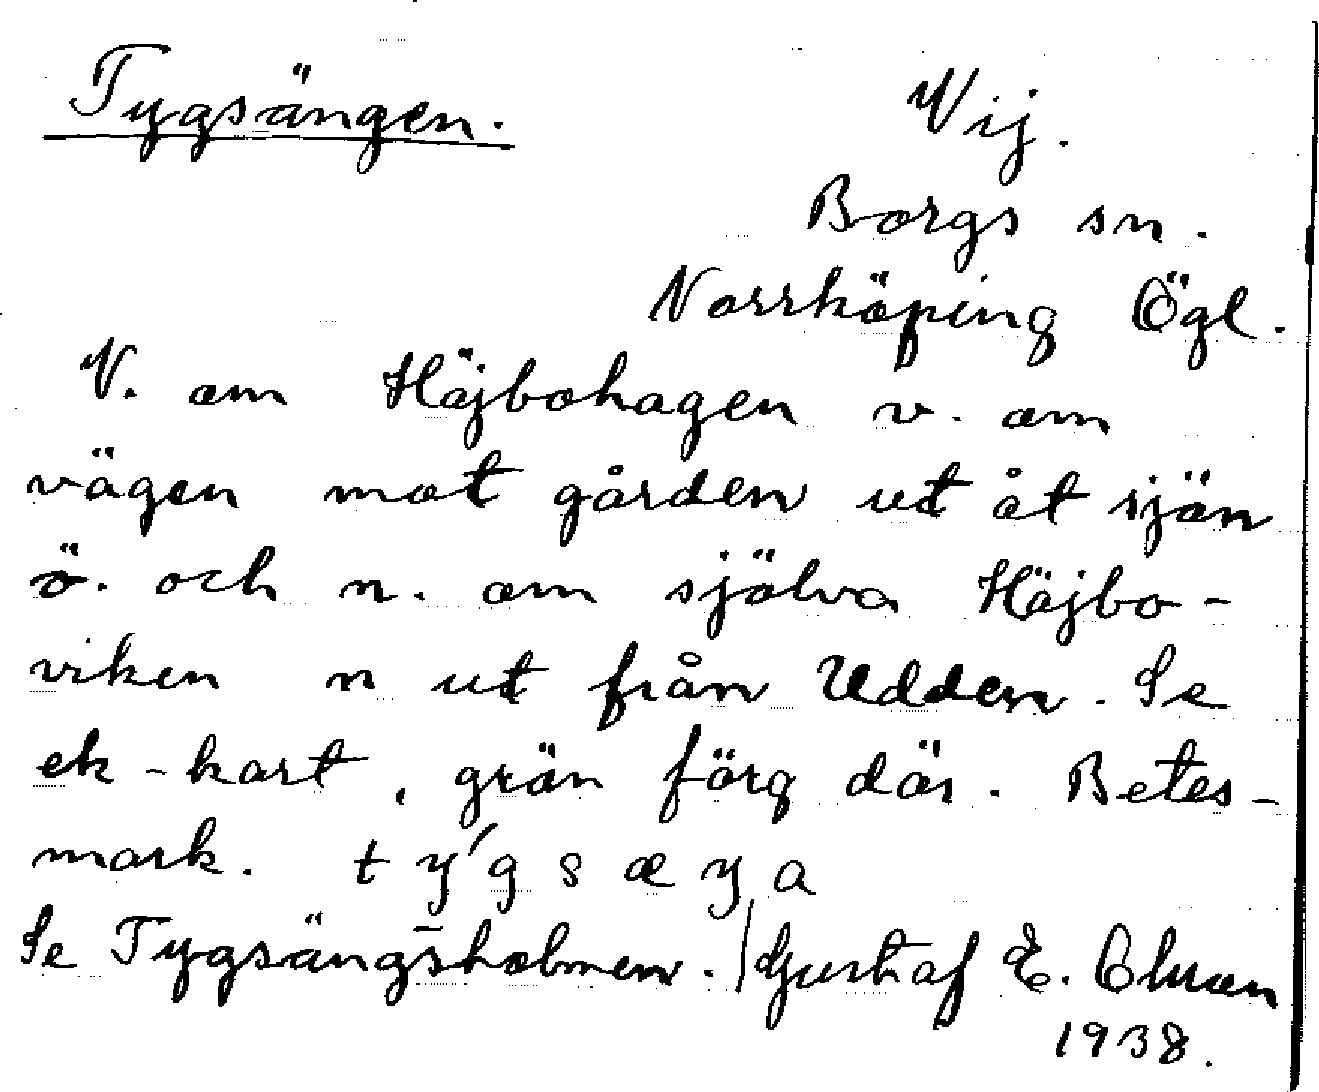 Tygsängen.
Vij.
Borgs sn.
Norrköping Ögl.
V. om Höjbohagen v. om
vägen mot gården ut åt sjön
ö. och n. om själva Höjbo-
viken n ut från Udden. Se
ek-kart, grön färg där. Betes-
mark. t y ́g s æ ŋ a
Se Tygsängsholmen. / Gustaf E. Olsson
1938.